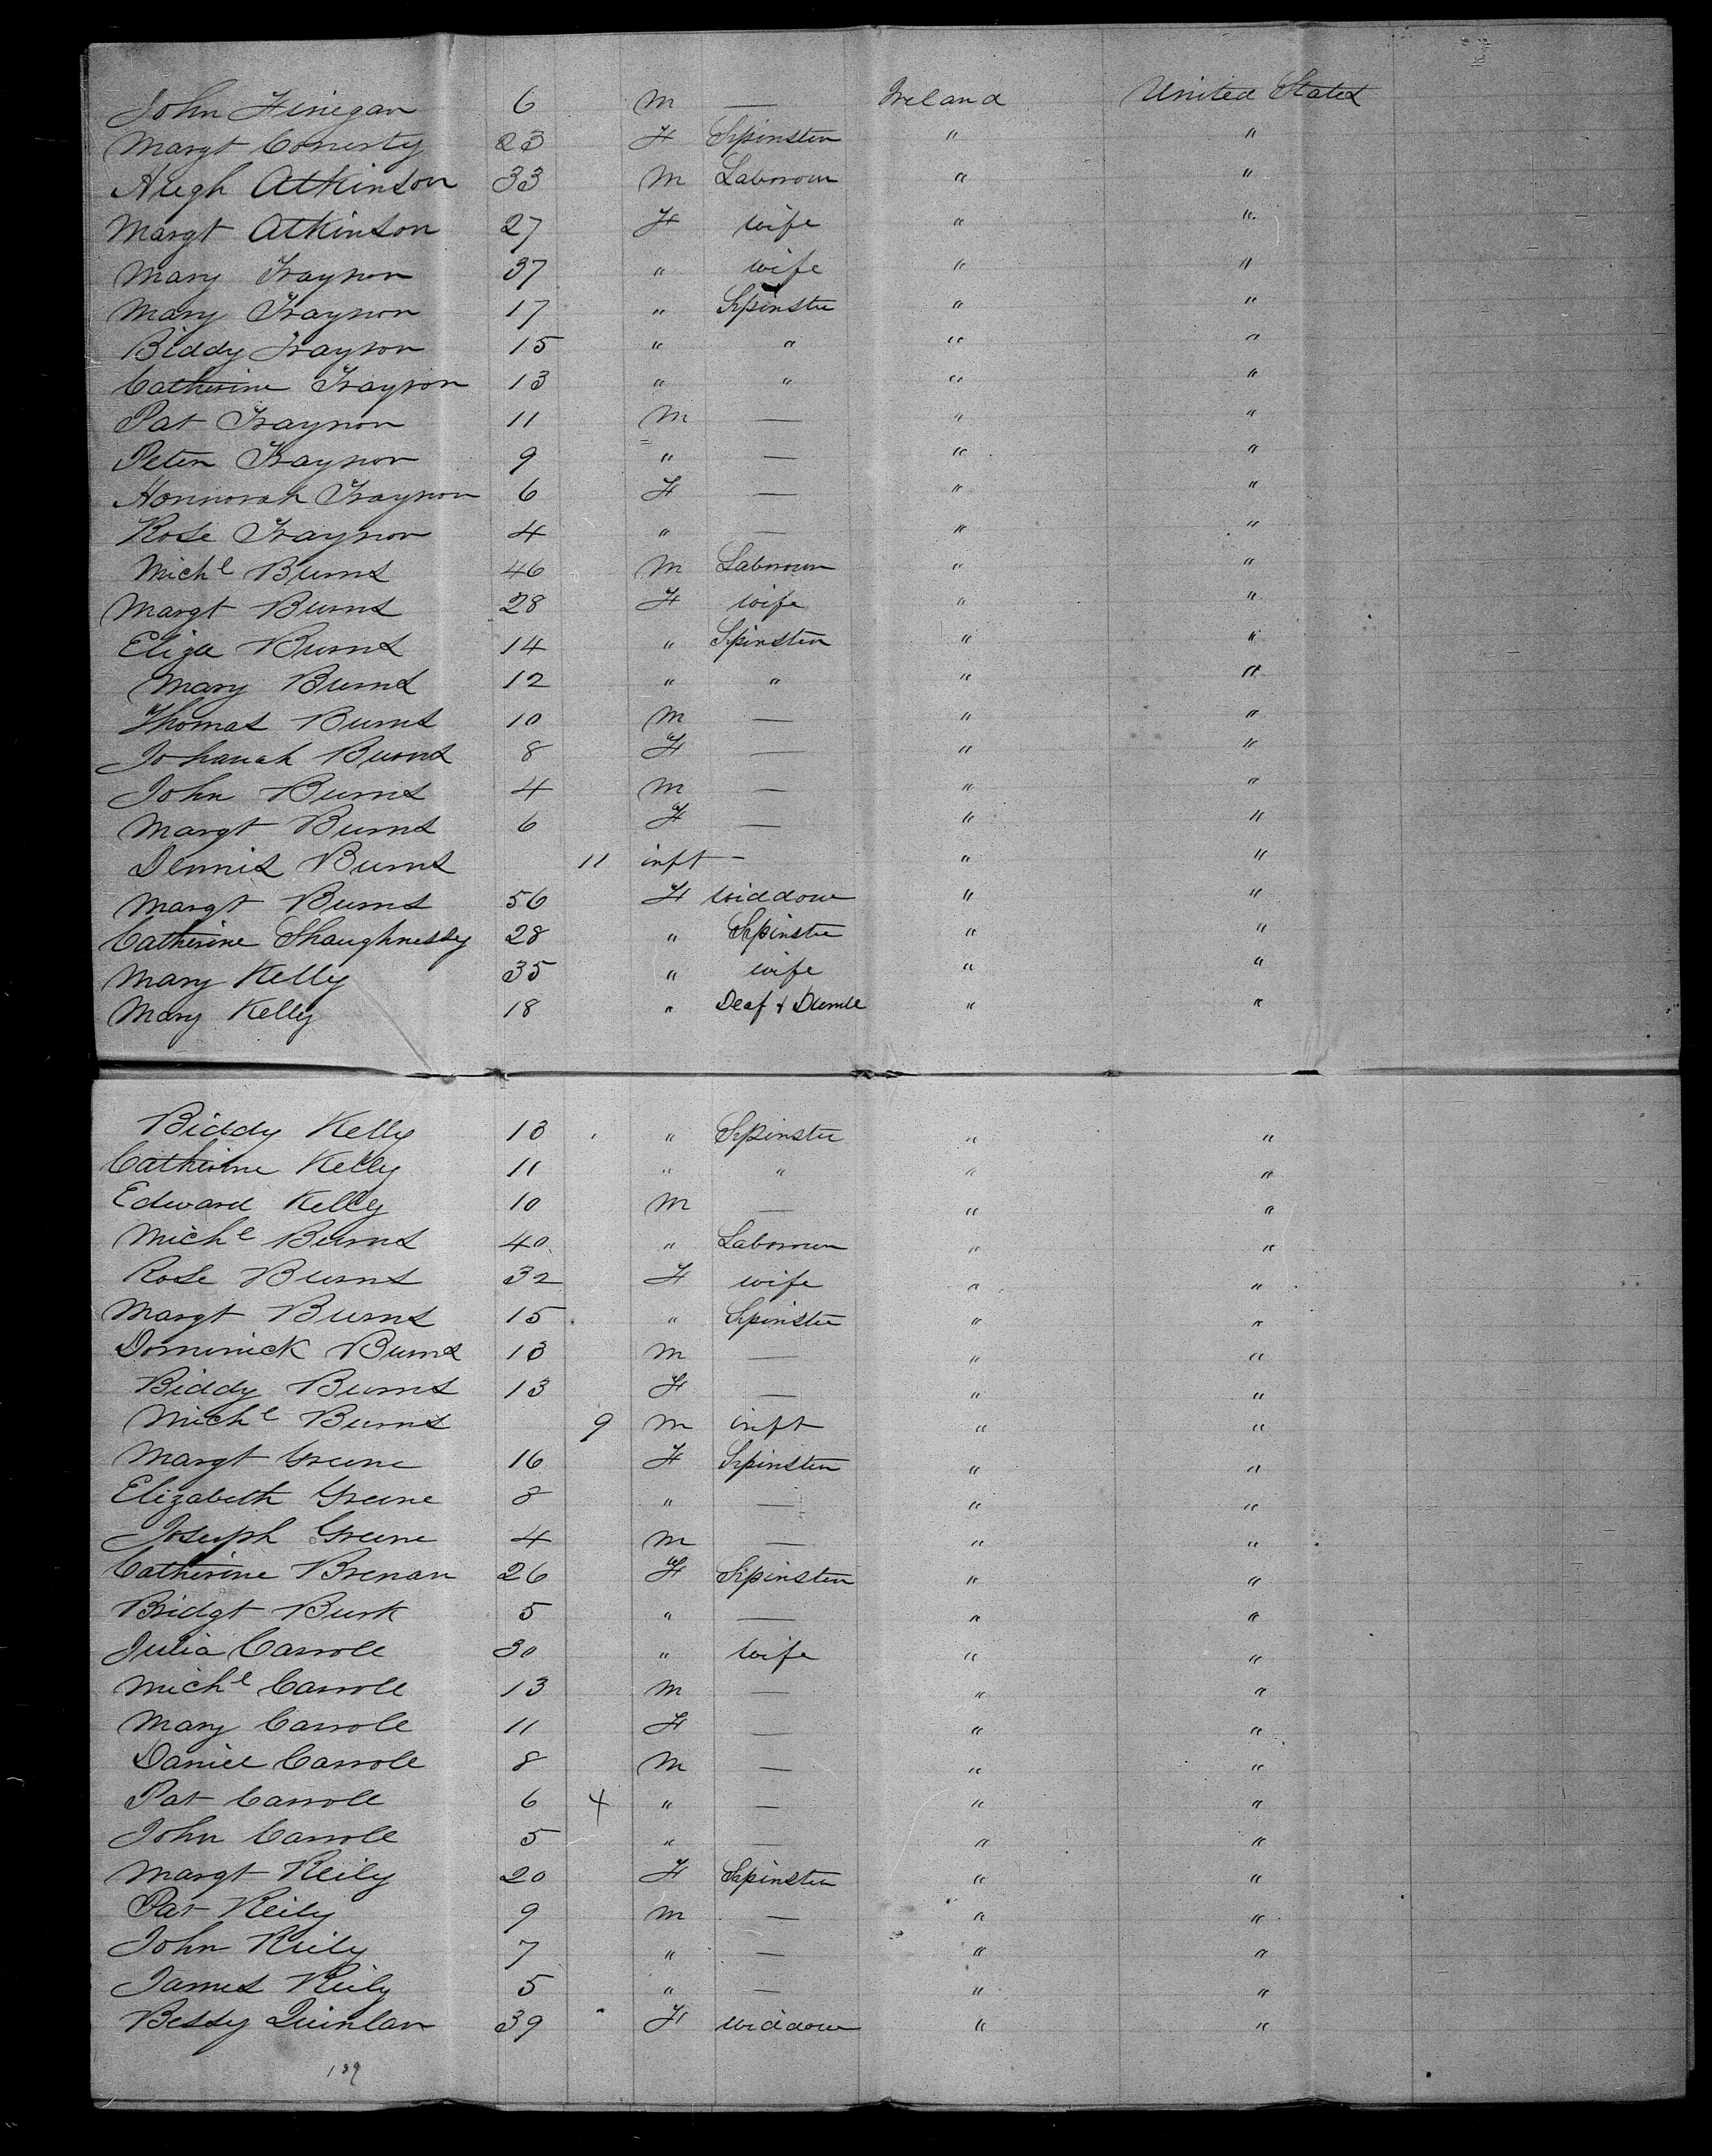 John Finegan 6 M — Ireland United States
Margt Conerty 23 F Spinster " "
Hugh Atkinson 33 M Labrour " "
Margt Atkinson 27 F wife " "
Mary Traynor 37 " wife " "
Mary Traynor 17 " Spinster " "
Biddy Traynor 15 " " " "
Catherine Traynor 13 " " " "
Pat Traynor 11 M — " "
Peter Traynor 9 " — " "
Honnorah Traynor 6 F — " "
Rose Traynor 4 " — " "
Michl Burns 46 M Labrour " "
Margt Burns 28 F wife " "
Eliza Burns 14 " Spinster " "
Mary Burns 12 " " " "
Thomas Burns 10 M — " "
Johanah Burns 8 F — " "
John Burns 4 M — " "
Margt Burns 6 F — " "
Dennis Burns 11 inft — " "
Margt Burns 56 F Widdow " "
Catherine Shaughnessy 28 " Spinster " "
Mary Kelly 35 " wife " "
Mary Kelly 18 " Deaf & Dumb " "
Biddy Kelly 13 " Spinster " "
Catherine Kelly 11 " " " "
Edward Kelly 10 M — " "
Michl Burns 40 " Labrour " "
Rose Burns 32 F wife " "
Margt Burns 15 " Spinster " "
Dominick Burns 13 M — " "
Biddy Burns 13 F — " "
Michl Burns 9 M inft " "
Margt Greene 16 F Spinster " "
Elizabeth Greene 8 " — " "
Joseph Greene 4 M — " "
Catherine Brenan 26 F Spinster " "
Bridgt Burk 5 " — " "
Julia Carroll 30 " wife " "
Michl Carroll 13 M — " "
Mary Carroll 11 F — " "
Daniel Carroll 8 M — " "
Pat Carroll 6 4 " — " "
John Carroll 5 " — " "
Margt Reily 20 F Spinster " "
Pat Reily 9 M — " "
John Reily 7 " — " "
James Reily 5 " — " "
Bessy Quinlan 39 F Widdow " "
139